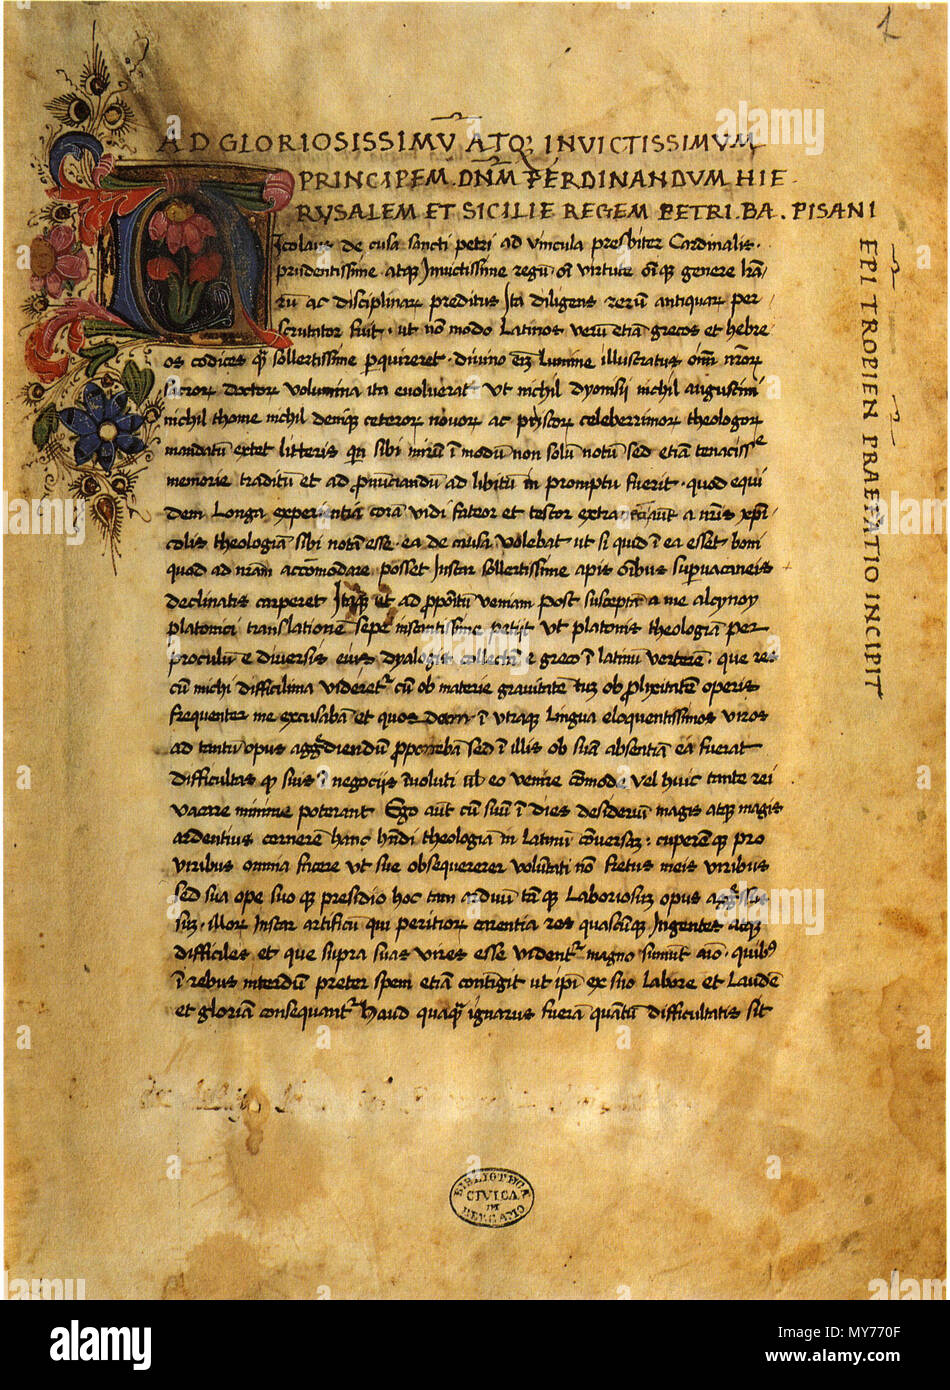 1
AD GLORIOSISSIMŪ ATQ; INVICTISSIMUM
PRINCIPEM. DN̄M FERDINANDVM HIE
RVSALEM ET SICILIE REGEM PETRI. BA. PISANI
EPI TROPIEN PRAEFATIO INCIPIT
Nicolaus de cusa sancti petri ad vincula presbiter Cardinalis.
prudentissime atq; Invictissime regū oī virtute oīq; genere Lrā
rū ac disciplinarꝝ preditus Ita diligens rerū antiquarꝝ per
scrutator fuit. ut nō modo Latinos verū etiā grecos et hebre
os codices sollertissime ꝑquireret. divino Lumine illustratus
volumina ita evoluerat ut nichil dyonisii nichil augustini
nichil thome nichil deniq; ceterorꝝ novorꝝ ac celeberrimorꝝ theologorꝝ
mandatū extet litteris sibi mirū ī modū non solū notū sed etiā tenaciss^e
memorie traditū et ad ꝓnūciandū ad libitū in promptu fuerit. quod equi
dem Longa experientia corā vidi fateor et testor extra
colis theologiā sibi notā esse. ea de causa volebat ut si quid ī ea esset boni
quod ad nr̄am accōmodare posset Instar sollertissime apis ōibus suꝑvacaneis
declinatis carperet Itaq; ut ad ꝓpositū veniam post susceptā a me alcynoy
platonici translationē sepe instantissime petijt ut platonis theologiā per
proculū e diversis eius dyalogis collectā e greco ī latinū verterē. que res
cū michi difficilima videret^r cū ob materie gravitatē tū ob ꝓlixitatē operis
frequenter me excusabā et quosdam ī utraq; Lingua eloquentissimos viros
ad tantū opus aggrediendū ꝓponebā sed ī illis ob suā absentiā ea fuerat
difficultas suis ī negocijs īvoluti eo venire cōmode vel huic tante rei
vacare minime poterant Ego aūt cū suū ī dies desideriū magis atq; magis
ardentius cernerē hanc theologiā in Latinū cōversā. cuperēq; pro
viribus omnia facere ut sue obsequererer volūtati nō fretus meis viribus
sed sua ope suo q; presidio hoc tam arduū tā q; Laboriosū opus aggressus
sū. Instar artificū qui peritiorꝝ carentia res quascūq; Ingentes atq;
difficiles et que supra suas vires esse vident^r magno sumūt aīo. quib9
ī rebus interdū preter spem etiā contīgit ut ipī ex suo Labore et Laudē
et gloriā consequant^r haud quaq̄ ignarus fuerā quātū difficultatis sit
BIBLIOTECA
CIVICA
DI
BERGAMO
alamy
Image ID: MY770F
www.alamy.com